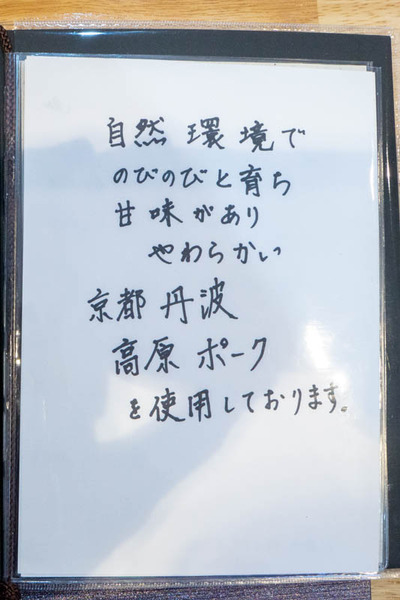 自然環境で
のびのびと育ち
甘味があり
やわらかい
京都丹波
高原ポーク
を使用しております。